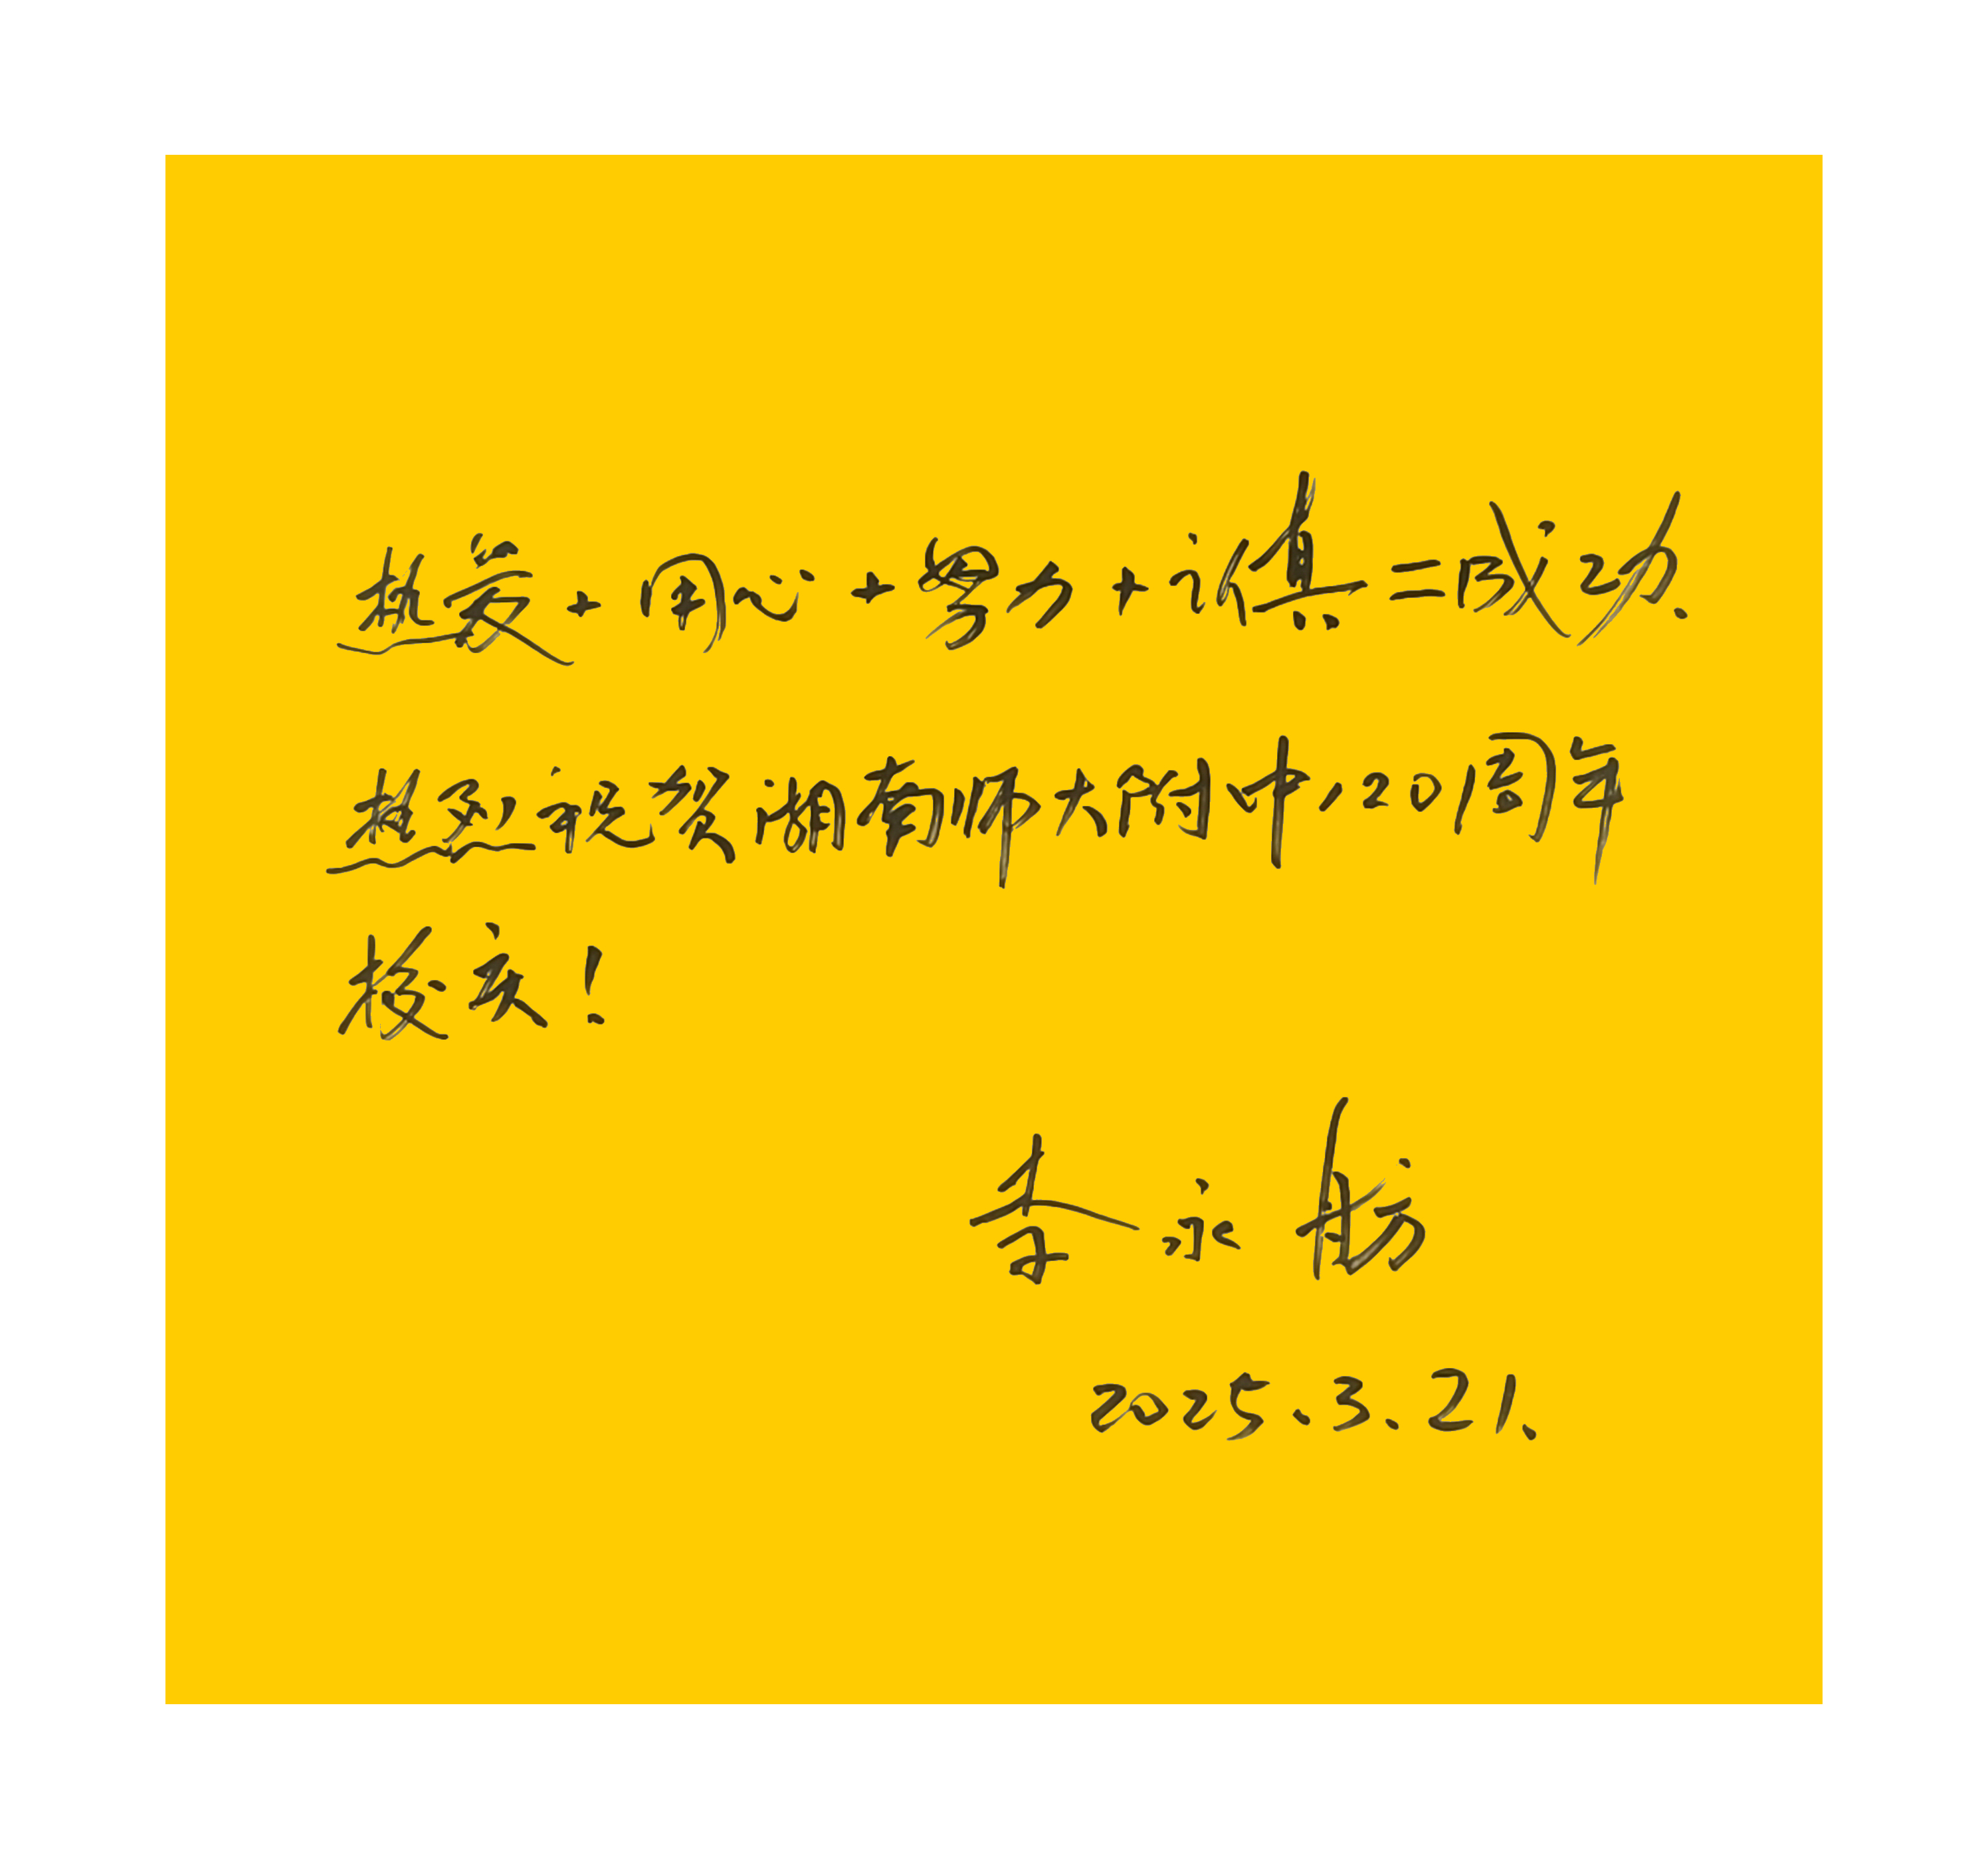 热爱+用心+努力+认真=成功.
热烈祝贺湖南师大附中120周年
校庆!
李永舫
2025.3.21.